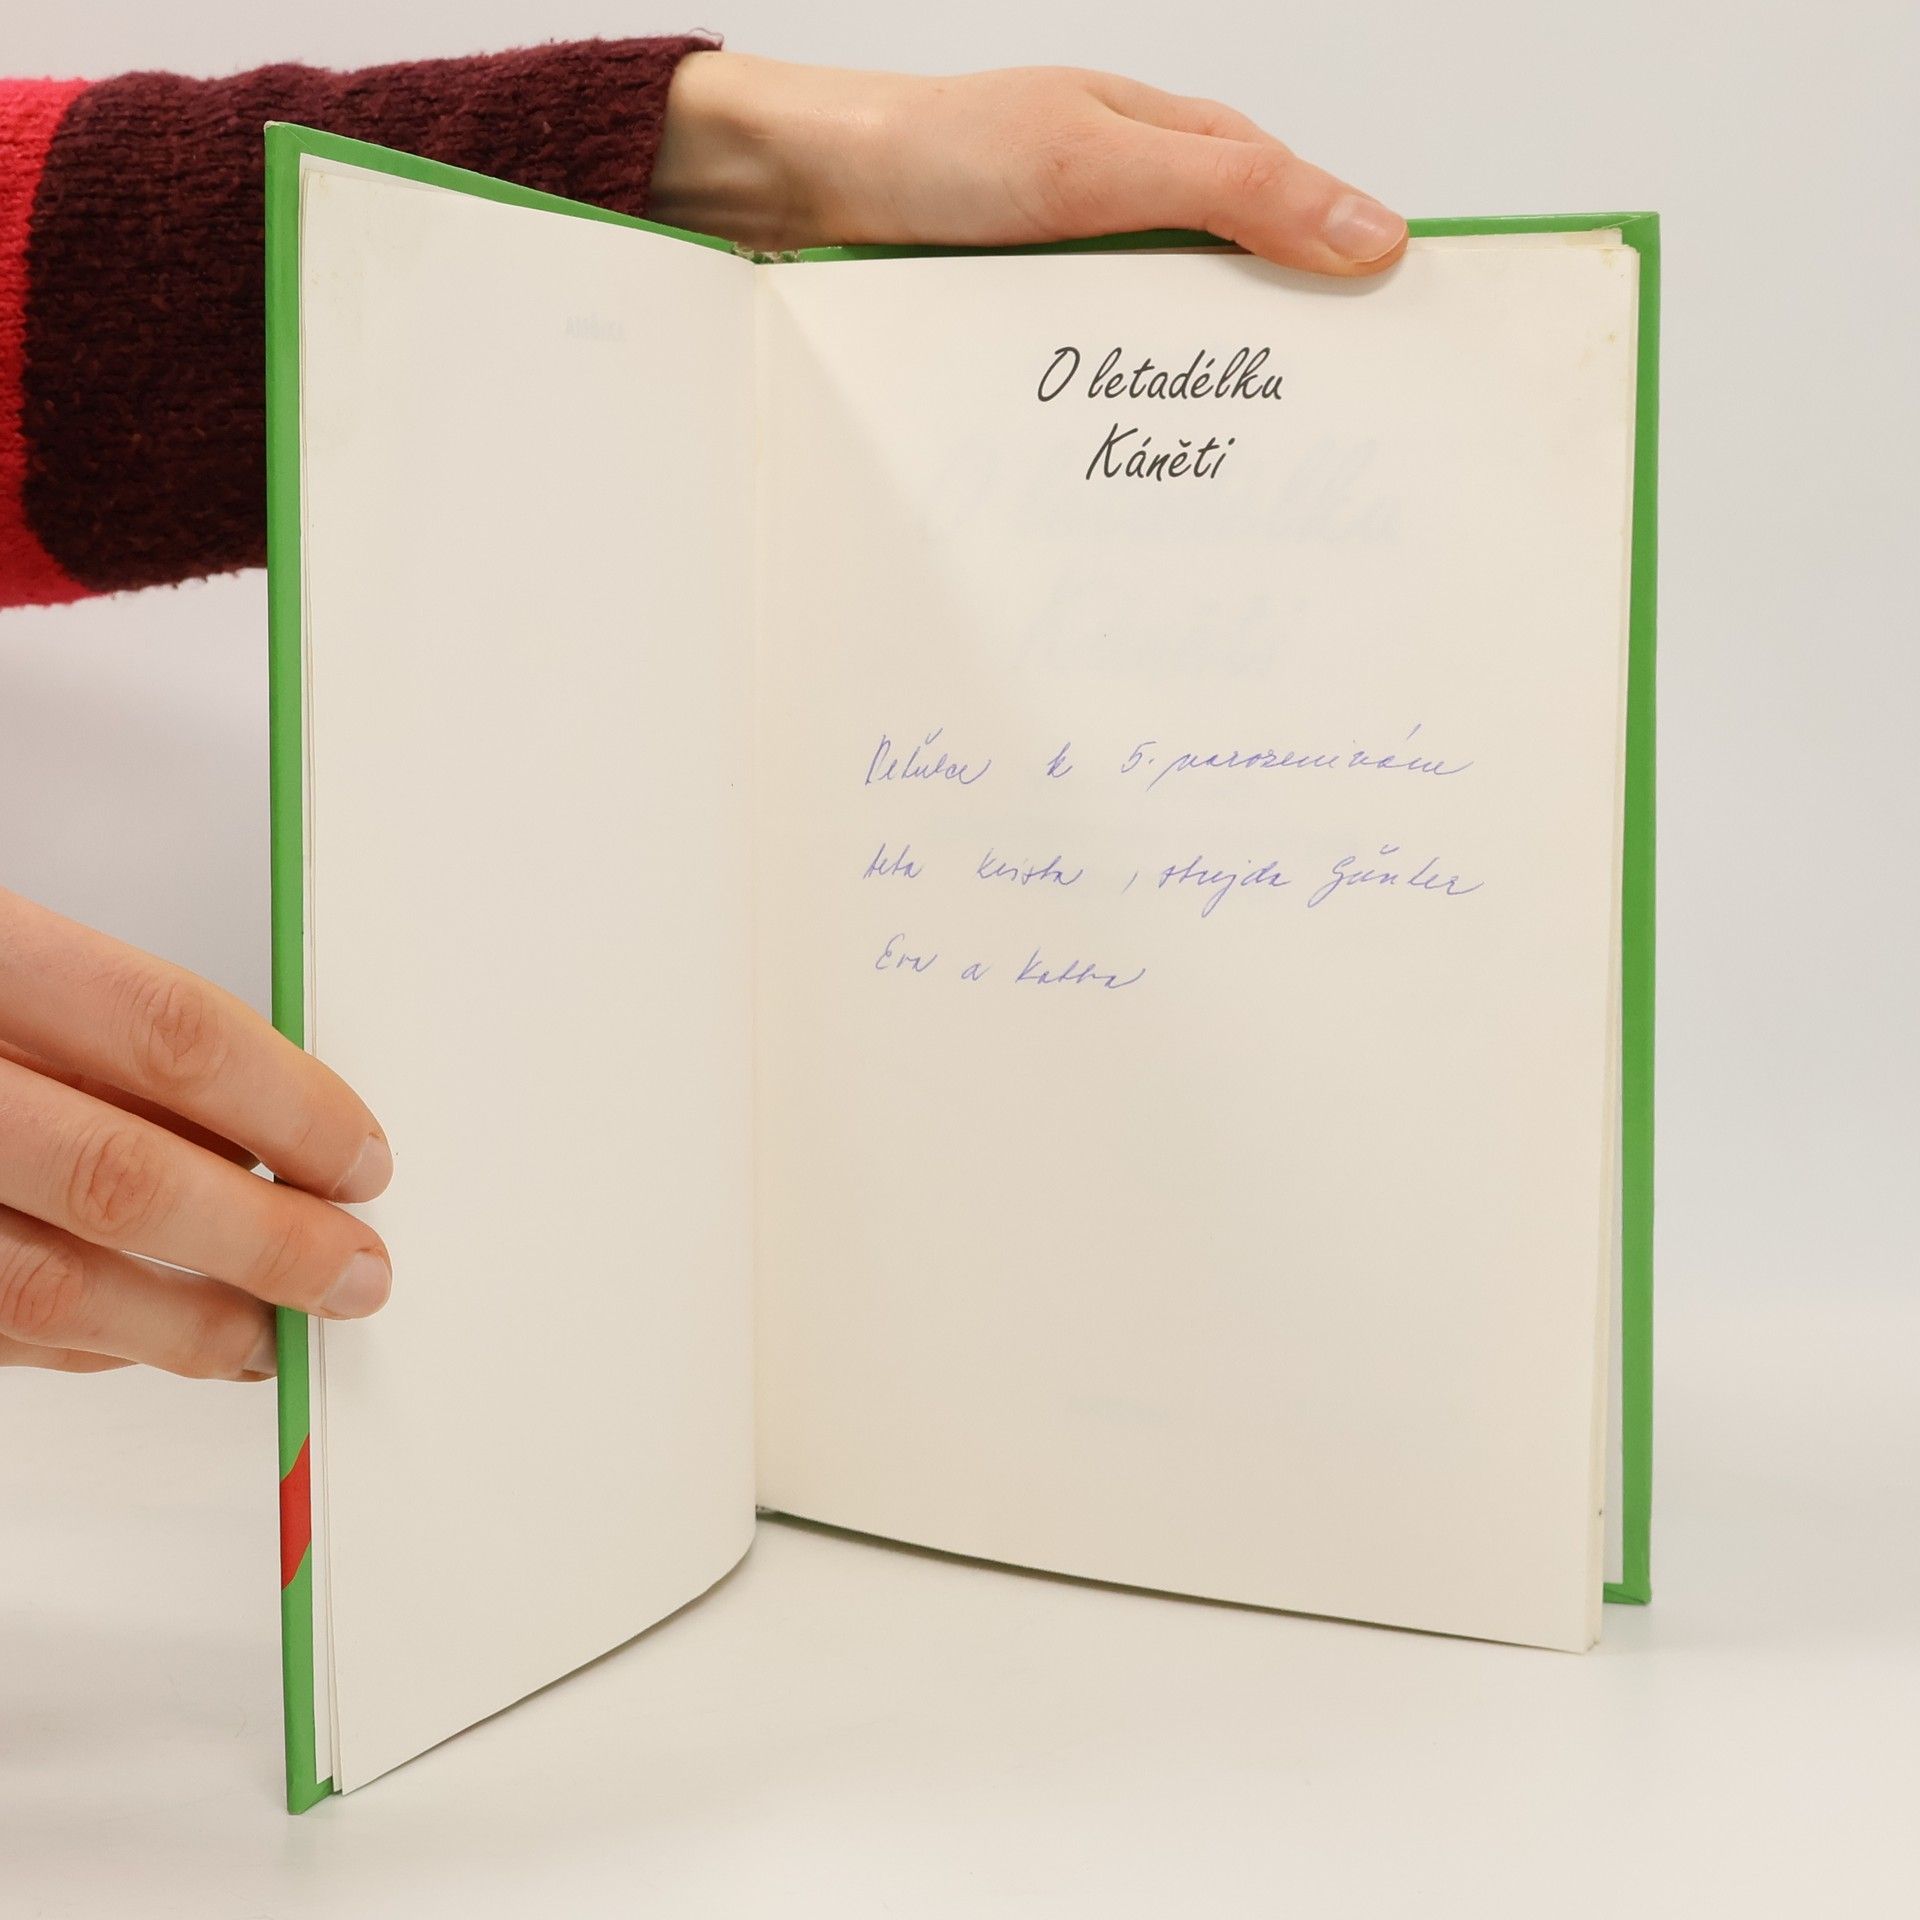 O letadélku
Káněti
Petulce k 5. narozeninám
teta Krista, strejda Günter
Eva a Katka